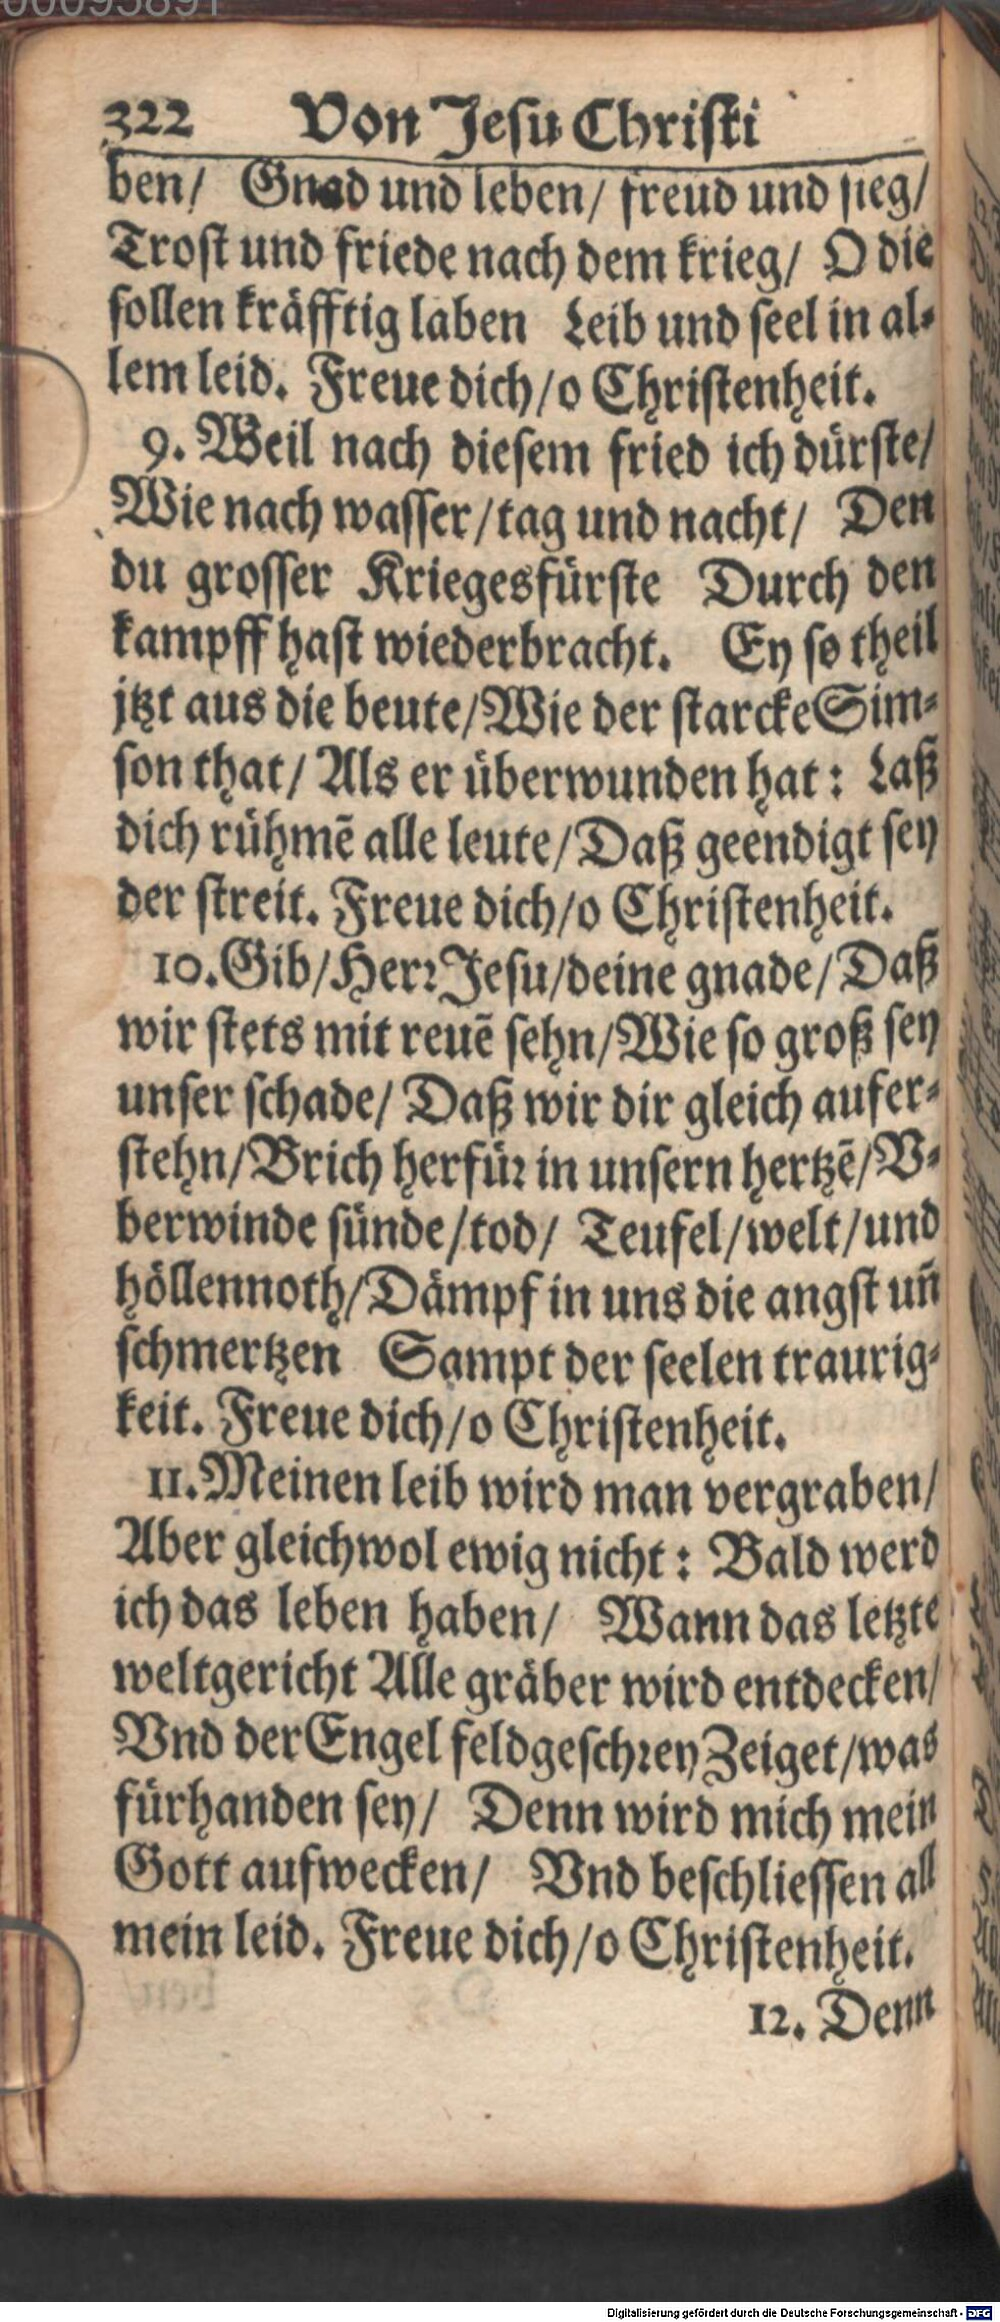 00095891
322 Von Jesu Christi
ben/ Gnad und leben/ freud und sieg/
Trost und friede nach dem krieg/ O die
sollen kräfftig laben Leib und seel in al-
lem leid. Freue dich/o Christenheit.
9. Weil nach diesem fried ich dürste/
Wie nach wasser/tag und nacht/ Den
du grosser Kriegesfürste Durch den
kampff hast wiederbracht. Ey so theil
jtzt aus die beute/Wie der starcke Sim-
son that/ Als er überwunden hat: Laß
dich rühmē alle leute/Daß geendigt sey
der streit. Freue dich/o Christenheit.
10. Gib/Herr Jesu/deine gnade/Daß
wir stets mit reuē sehn/Wie so groß sey
unser schade/ Daß wir dir gleich aufer-
stehn/Brich herfür in unsern hertzē/V-
berwinde sünde/tod/ Teufel/welt/und
höllennoth/Dämpf in uns die angst uñ
schmertzen Sampt der seelen traurig-
keit. Freue dich/o Christenheit.
11. Meinen leib wird man vergraben/
Aber gleichwol ewig nicht: Bald werd
ich das leben haben/ Wann das letzte
weltgericht Alle gräber wird entdecken/
Vnd der Engel feldgeschrey Zeiget/was
fürhanden sey/ Denn wird mich mein
Gott aufwecken/ Vnd beschliessen all
mein leid. Freue dich/o Christenheit.
12. Denn
Digitalisierung gefördert durch die Deutsche Forschungsgemeinschaft - DFG